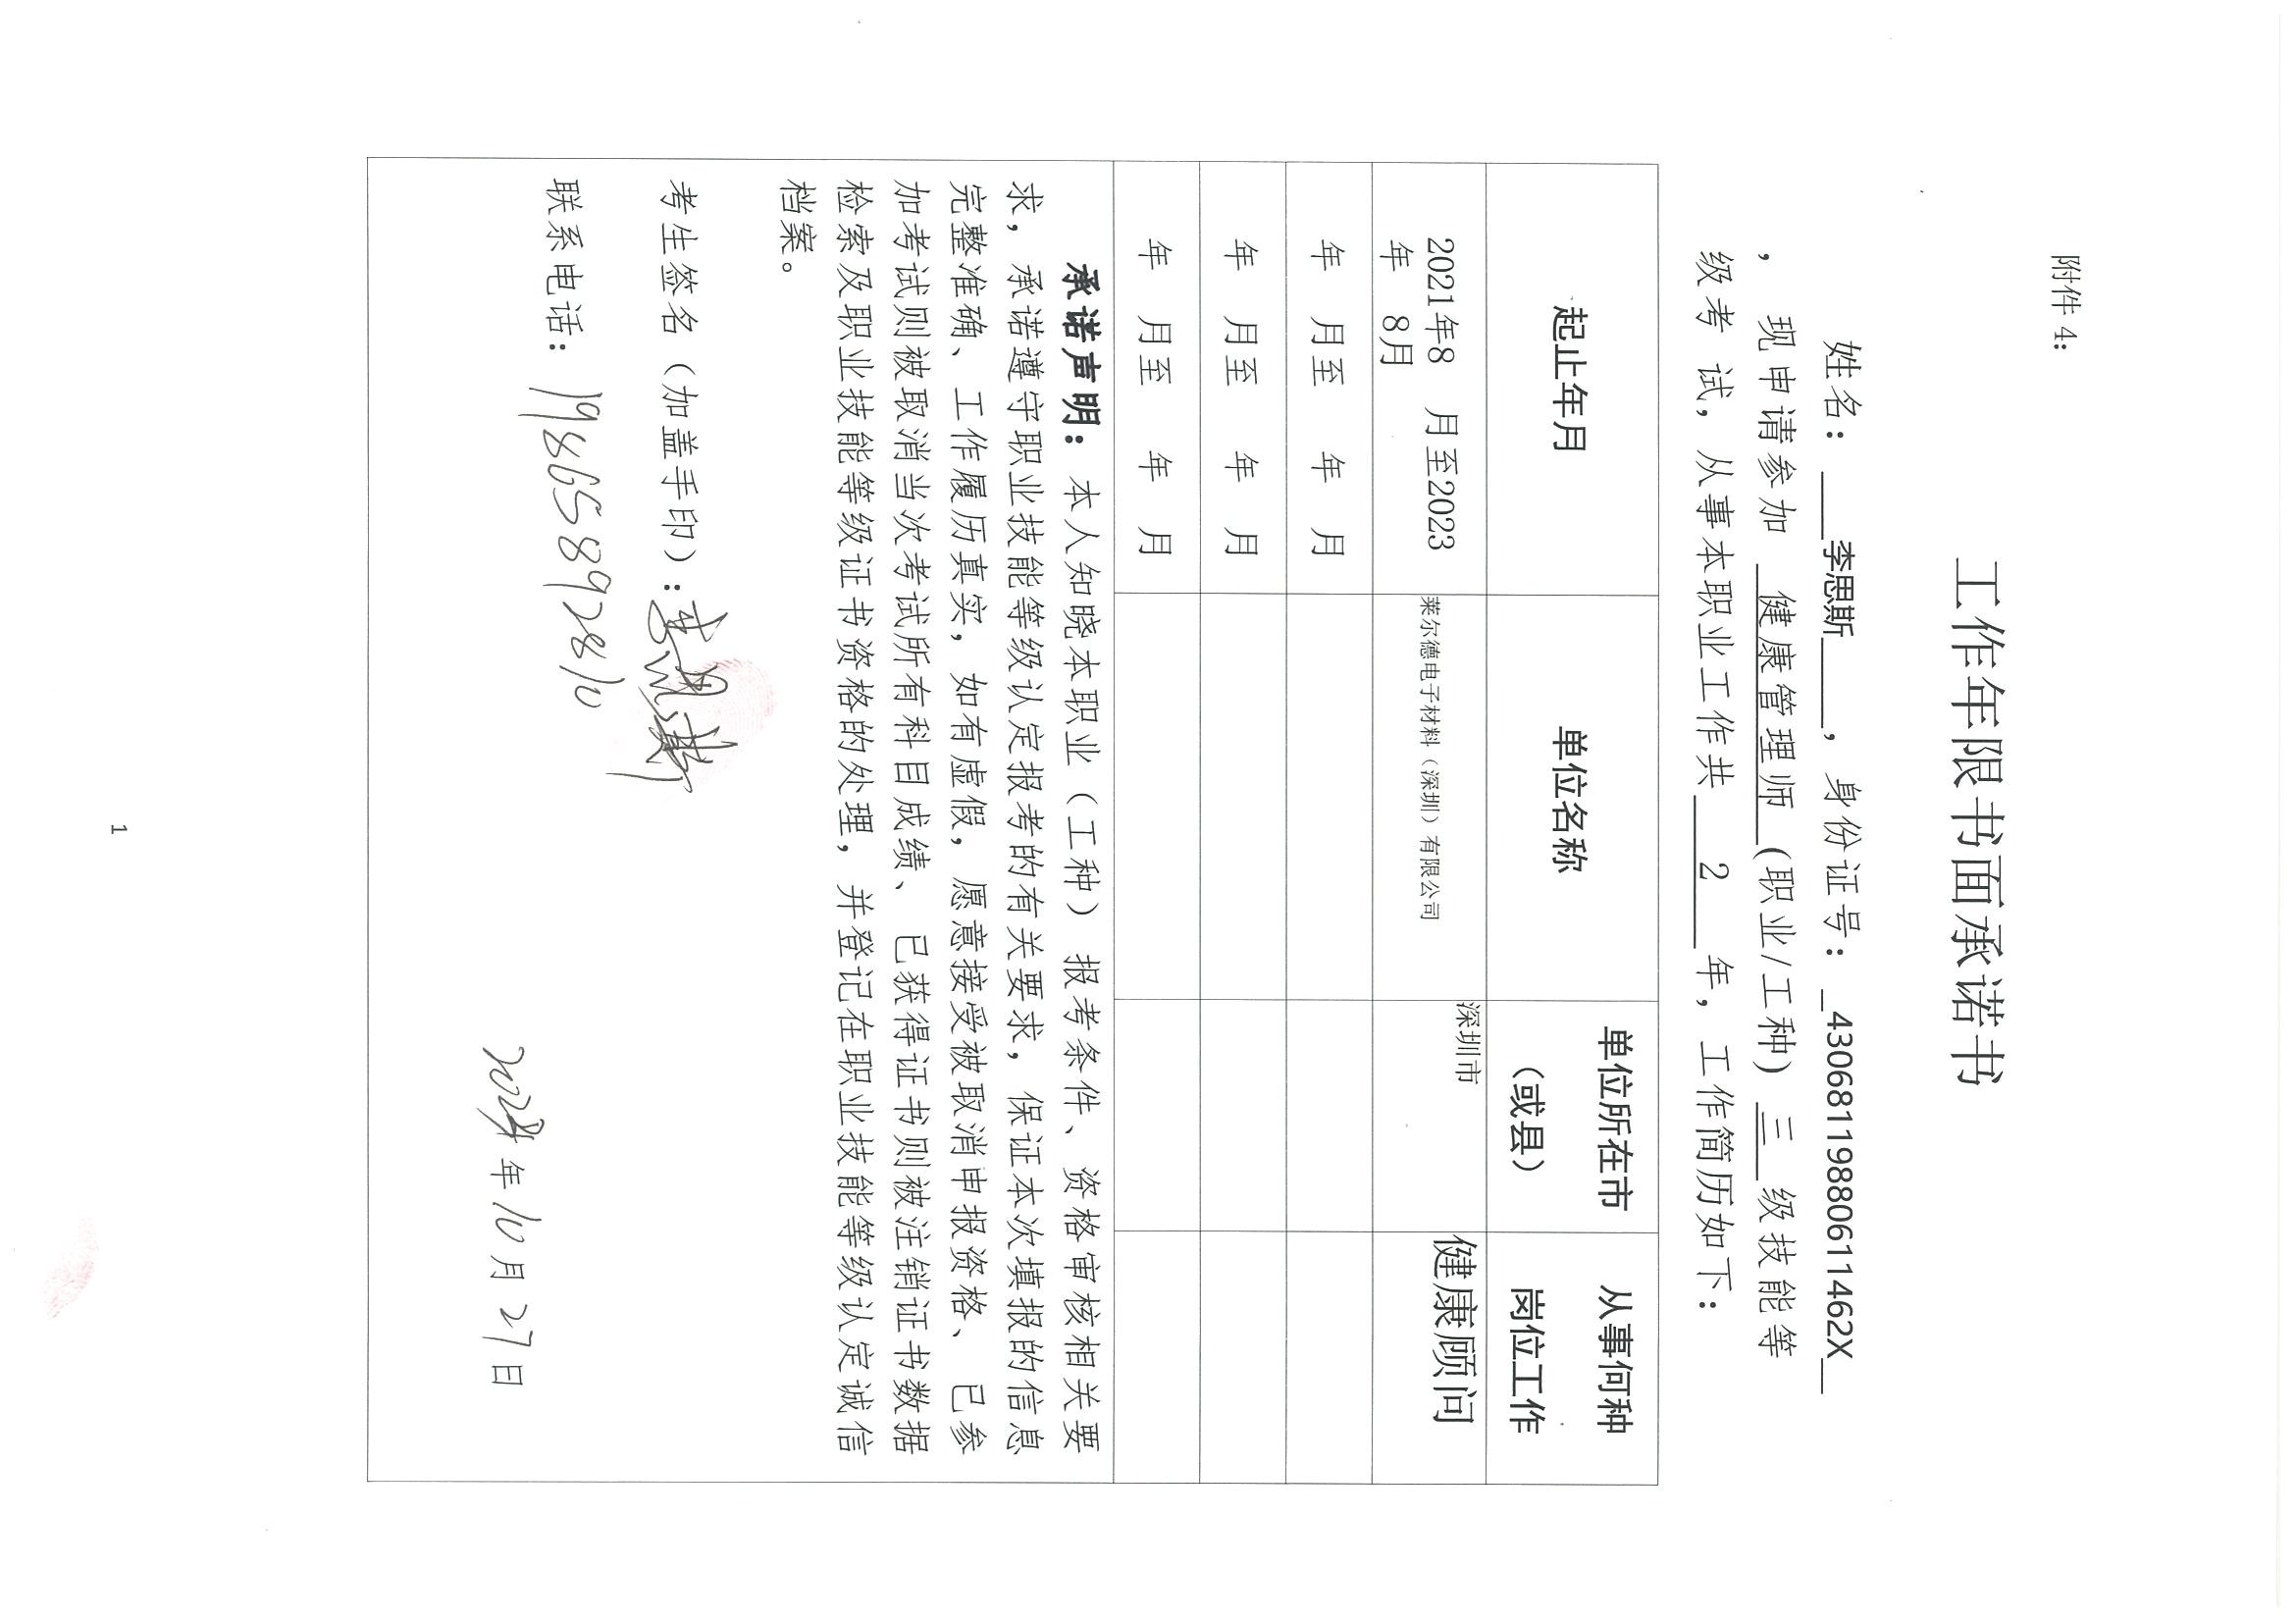 附件 4：
工作年限书面承诺书
姓名： 李思斯 ，身份证号： 43068119880611462X
，现申请参加 健康管理师 (职业/工种) 三 级技能等
级考 试，从事本职业工作共 2 年，工作简历如下：
起止年月 单位名称 单位所在市（或县） 从事何种岗位工作
2021年8 月至2023年 8月 莱尔德电子材料（深圳）有限公司 深圳市 健康顾问
年 月至 年 月
年 月至 年 月
年 月至 年 月
承诺声明：本人知晓本职业（工种）报考条件、资格审核相关要
求，承诺遵守职业技能等级认定报考的有关要求，保证本次填报的信息
完整准确、工作履历真实，如有虚假，愿意接受被取消申报资格、已参
加考试则被取消当次考试所有科目成绩、已获得证书则被注销证书数据
检索及职业技能等级证书资格的处理，并登记在职业技能等级认定诚信
档案。
考生签名（加盖手印）：李思斯
联系电话：19865897810
年 10 月 27 日
1